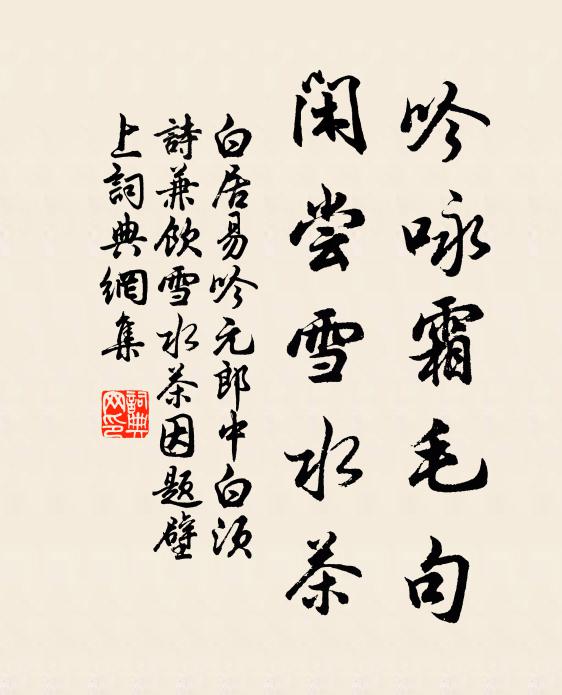 吟咏霜毛句
闲尝雪水茶
白居易吟元郎中白须
詩兼飲雪水茶因题壁
上詞典網集
詞典网印